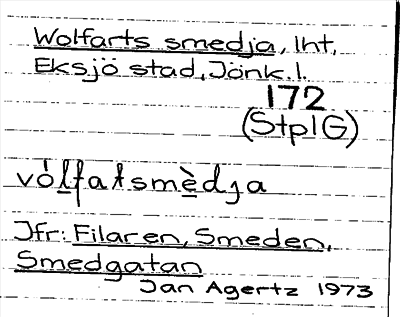 Wolfarts smedja, lht,
Eksjö stad, Jönk. l.
172
(StplG)
vólfatsmèdja
Jfr: Filaren, Smeden,
Smedgatan
Jan Agertz 1973